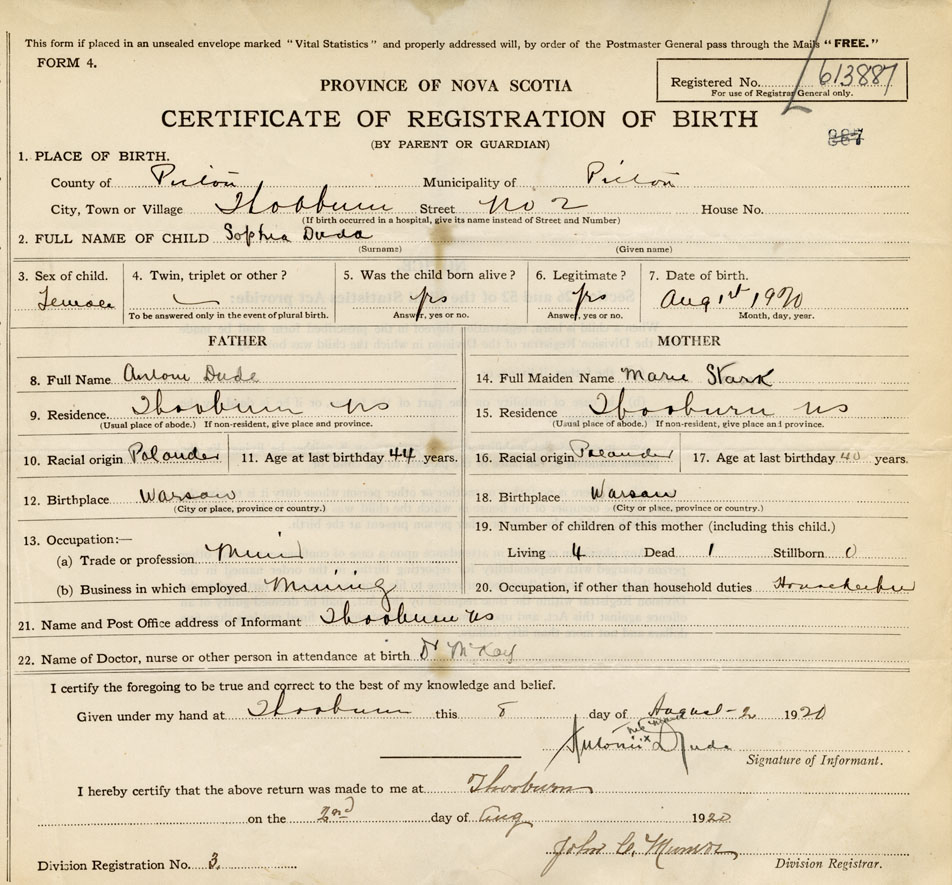 This form if placed in an unsealed envelope marked "Vital Statistics" and properly addressed will, by order of the Postmaster General pass through the Mails "FREE."
FORM 4.
Registered No. 613887
For use of Registrar General only.
PROVINCE OF NOVA SCOTIA
CERTIFICATE OF REGISTRATION OF BIRTH
(BY PARENT OR GUARDIAN)
387
1. PLACE OF BIRTH.
County of Pictou Municipality of Pictou
City, Town or Village Thorburn Street No 2 House No.
(If birth occurred in a hospital, give its name instead of Street and Number)
2. FULL NAME OF CHILD Sophia Duda
(Surname) (Given name)
3. Sex of child. 4. Twin, triplet or other? 5. Was the child born alive? 6. Legitimate? 7. Date of birth.
Female yrs yrs Aug 1st, 1920
To be answered only in the event of plural birth. Answer, yes or no. Answer, yes or no. Month, day, year.
FATHER MOTHER
8. Full Name Antoni Dude 14. Full Maiden Name Marie Stark
9. Residence Thorburn NS 15. Residence Thorburn NS
(Usual place of abode.) If non-resident, give place and province. (Usual place of abode.) If non-resident, give place and province.
10. Racial origin Polander 11. Age at last birthday 44 years. 16. Racial origin Polander 17. Age at last birthday 40 years.
12. Birthplace Warsaw 18. Birthplace Warsaw
(City or place, province or country.) (City or place, province or country.)
13. Occupation:— 19. Number of children of this mother (including this child.)
(a) Trade or profession Living 4 Dead 1 Stillborn 0
(b) Business in which employed Mining 20. Occupation, if other than household duties
21. Name and Post Office address of Informant Thorburn NS
22. Name of Doctor, nurse or other person in attendance at birth Dr McKay
I certify the foregoing to be true and correct to the best of my knowledge and belief.
Given under my hand at Thorburn this 8 day of August-2 1920
Antoni x Duda
his mark
Signature of Informant.
I hereby certify that the above return was made to me at Thorburn
on the 2nd day of Aug 1920
John C. Munro
Division Registration No. 3. Division Registrar.